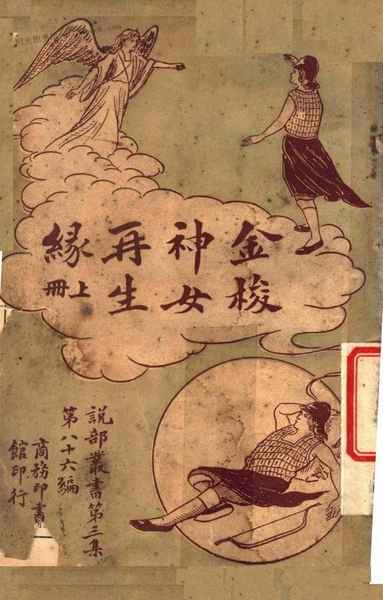 金梭
神女
再生
緣上冊
說部叢書第三集
第八十六編
商務印書
館印行